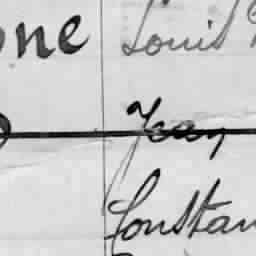 one Louis
Jean
Constan